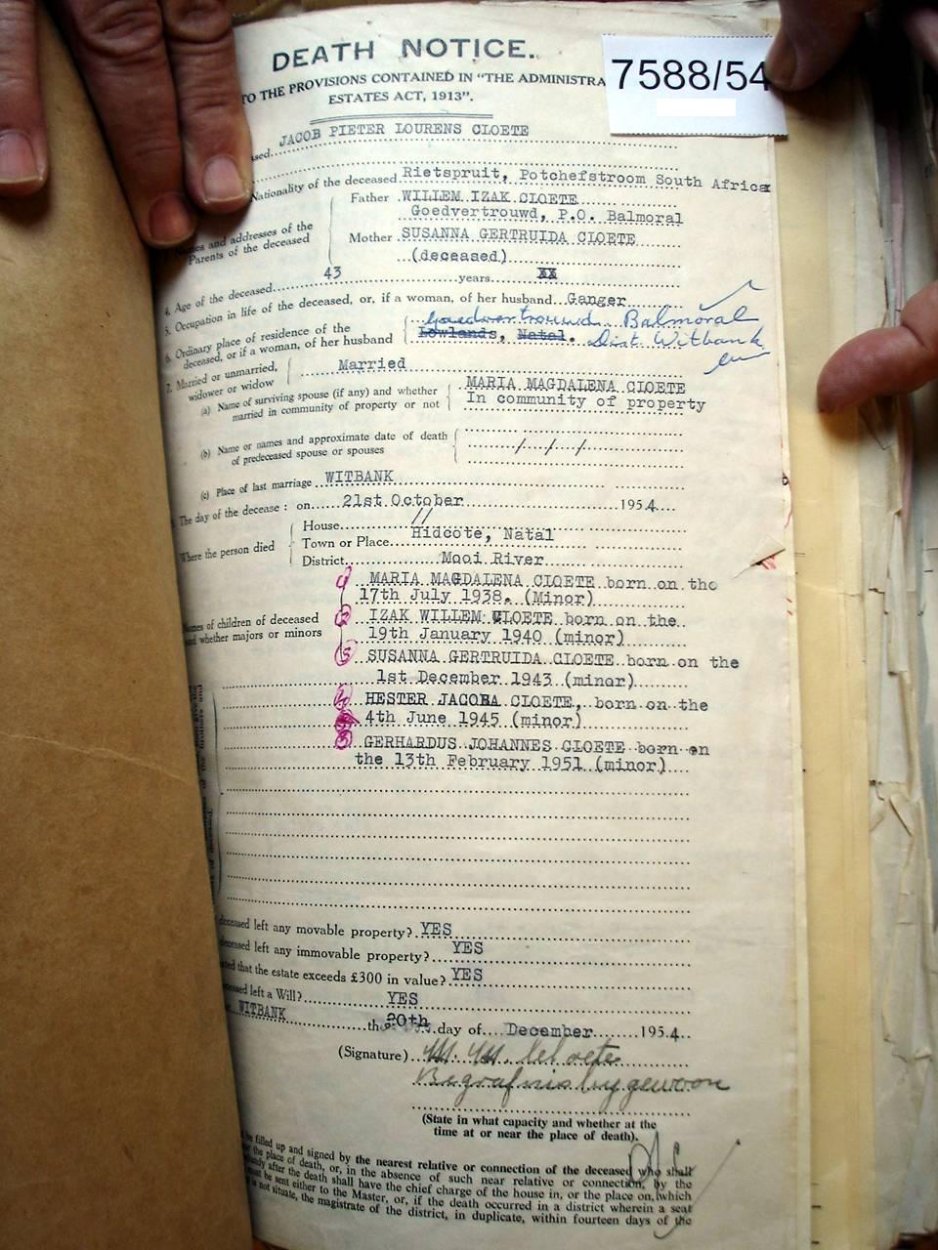 DEATH NOTICE.
7588/54
TO THE PROVISIONS CONTAINED IN "THE ADMINISTRA
ESTATES ACT, 1913".
sed. JACOB PIETER LOURENS CLOETE
Nationality of the deceased Rietspruit, Potchefstroom South Africa
Names and addresses of the Parents of the deceased
Father WILLEM IZAK CLOETE
Goedvertrouwd, P.O. Balmoral
Mother SUSANNA GERTRUIDA CLOETE
(deceased)
4. Age of the deceased 43 years XX
5. Occupation in life of the deceased, or, if a woman, of her husband Ganger
6. Ordinary place of residence of the deceased, or if a woman, of her husband
Goedvertrouwd Balmoral
Lowlands, Natal. Dist. Witbank
7. Married or unmarried, widower or widow Married
(a) Name of surviving spouse (if any) and whether married in community of property or not
MARIA MAGDALENA CLOETE
In community of property
(b) Name or names and approximate date of death of predeceased spouse or spouses
/ / /
(c) Place of last marriage WITBANK
The day of the decease : on 21st October 1954
Where the person died
House //
Town or Place Hidcote, Natal
District Mooi River
Names of children of deceased and whether majors or minors
1 MARIA MAGDALENA CLOETE born on the
17th July 1938. (Minor)
2 IZAK WILLEM CLOETE born on the
19th January 1940 (minor)
3 SUSANNA GERTRUIDA CLOETE born on the
1st December 1943 (minor)
4 HESTER JACOBA CLOETE, born on the
4th June 1945 (minor)
5 GERHARDUS JOHANNES CLOETE born on
the 13th February 1951 (minor)
deceased left any movable property? YES
deceased left any immovable property? YES
ated that the estate exceeds £300 in value? YES
eased left a Will? YES
WITBANK the 20th day of December 1954
(Signature) M. M. Cloete
Begrafnis bygewoon
(State in what capacity and whether at the
time at or near the place of death).
be filled up and signed by the nearest relative or connection of the deceased who shall
the place of death, or, in the absence of such near relative or connection, by the
after the death shall have the chief charge of the house in, or the place on, which
must be sent either to the Master, or, if the death occurred in a district wherein a seat
is not situate, the magistrate of the district, in duplicate, within fourteen days of the